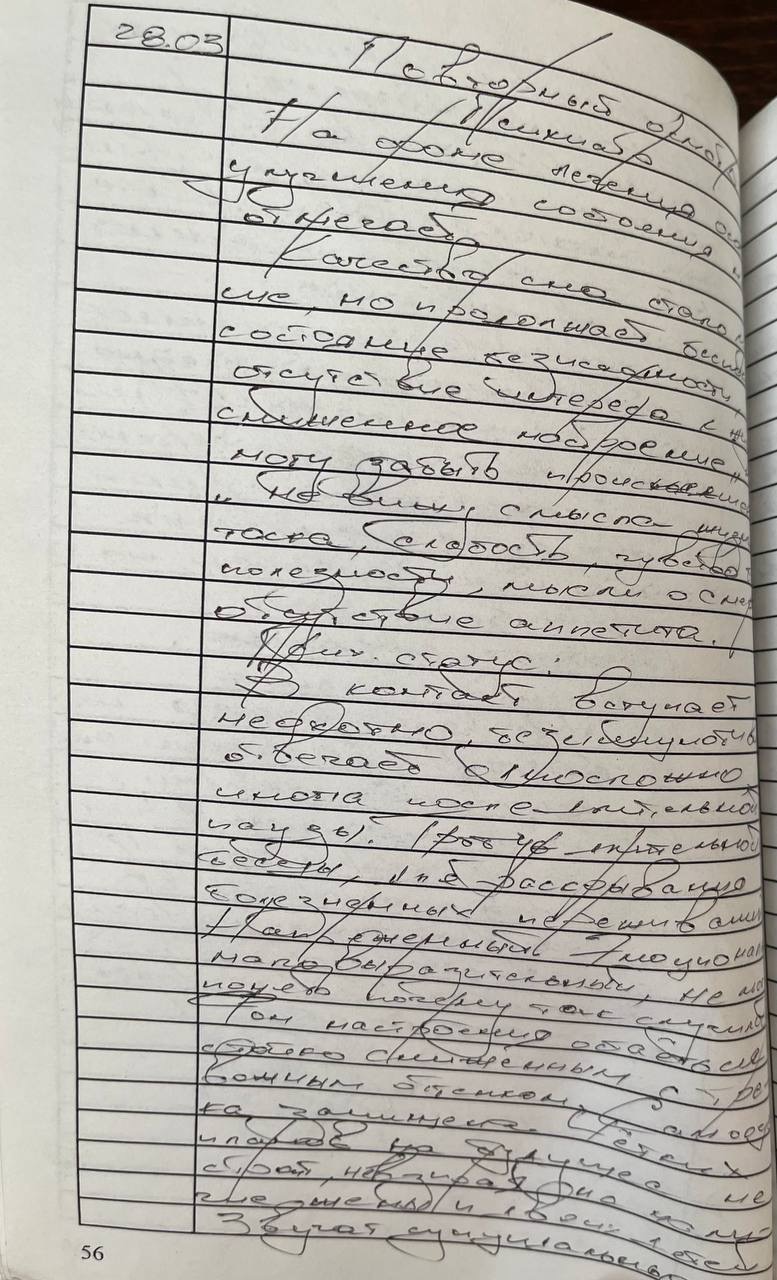 28.03
Повторный осмотр
Психиатр
На фоне лечения
улучшения состояния не
отмечает.
Качество сна стало
ше, но продолжает
состояние безысходности,
отсутствие интереса к
сниженное настроение,
могу забыть
"не вижу смысла
тоска, слабость, чувство
полезности, мысли о
отсутствие аппетита.
Псих. статус:
В контакт вступает
неохотно, безынициативно
отвечает односложно
иногда после длительной
паузы. Требует длительной
беседы, для раскрывания
болезненных переживаний
Напряженный. Эмоционально
маловыразительный, не
понять почему так
Тон настроения остаётся
стойко сниженным с тре-
вожным оттенком.
занижена. Четких
планов на будущее не
строит, невзирая на
и своих детей
Звучат суицидальные
56